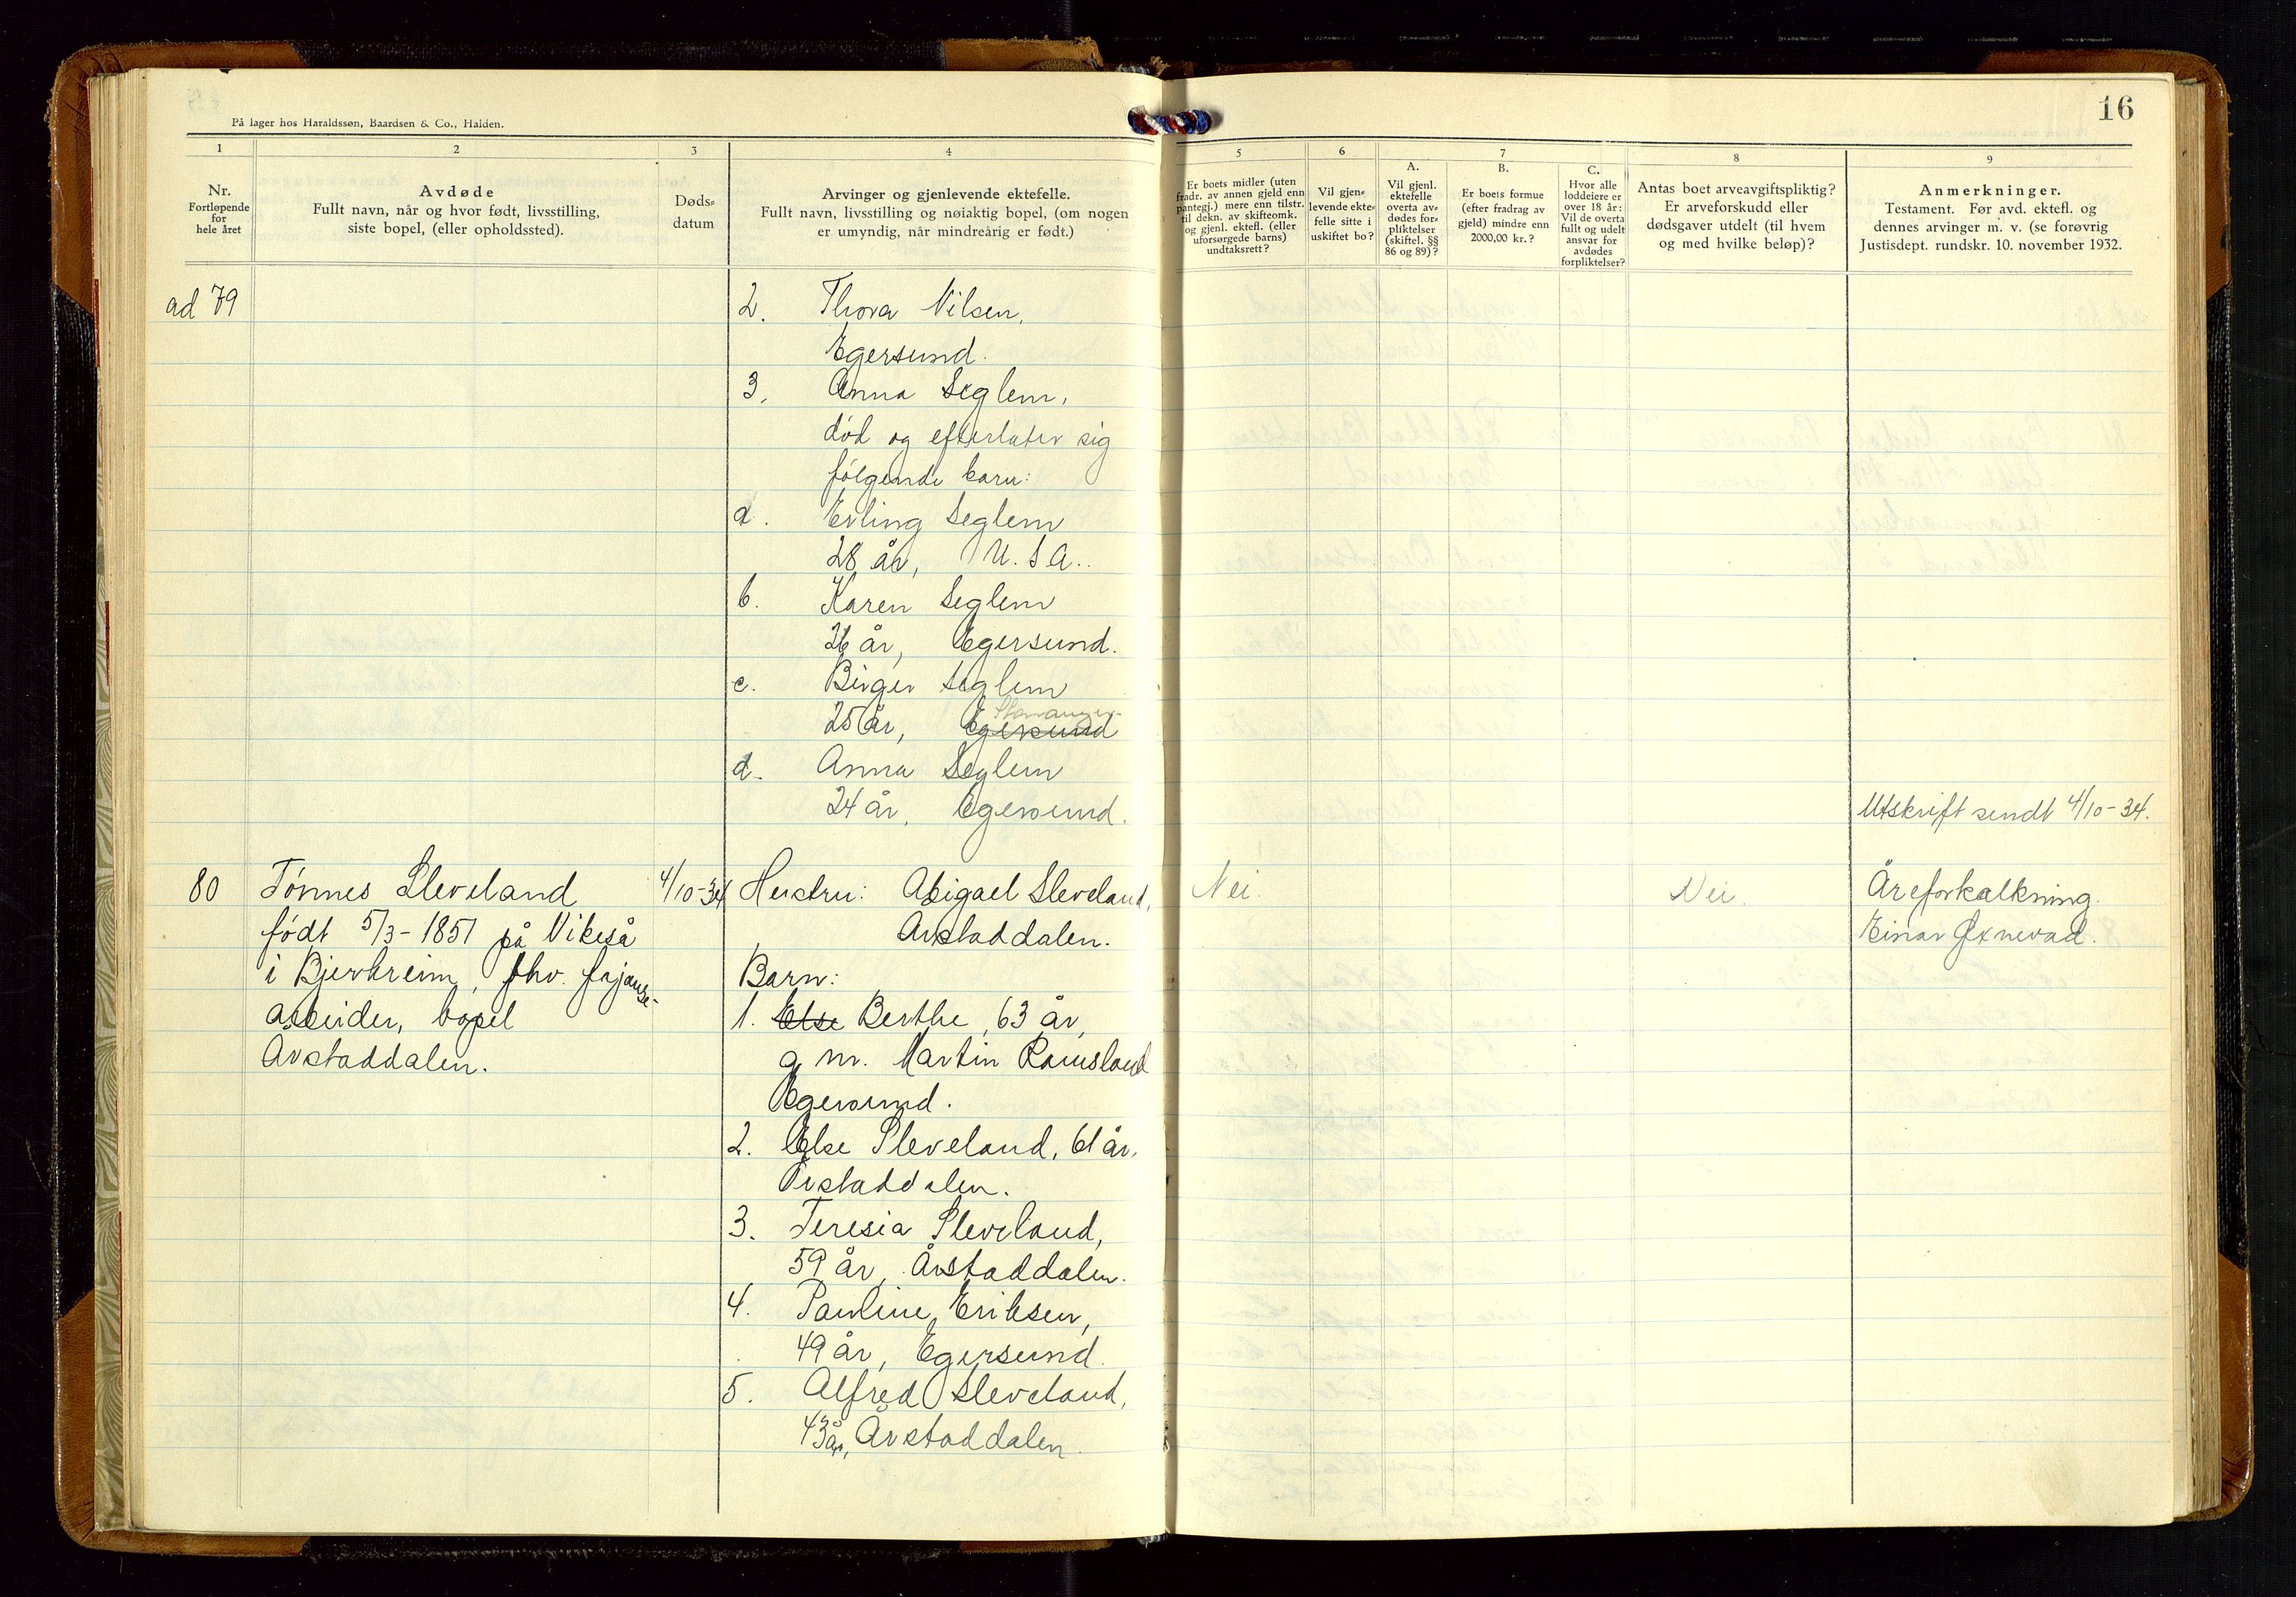 16
På lager hos Haraldssøn, Baardsen & Co., Halden.
1
2
3
4
5
6
7
8
9
Nr.
Fortløpende
for
hele året
Avdøde
Fullt navn, når og hvor født, livsstilling,
siste bopel, (eller opholdssted).
Døds-
datum
Arvinger og gjenlevende ektefelle.
Fullt navn, livsstilling og nøiaktig bopel, (om nogen
er umyndig, når mindreårig er født.)
Er boets midler (uten
fradr. av annen gjeld enn
pantegj.) mere enn tilstr.
til dekn. av skifteomk.
og gjenl. ektefl. (eller
uforsørgede barns)
undtaksrett?
Vil gjen-
levende ekte-
felle sitte i
uskiftet bo?
A.
Vil gjenl.
ektefelle
overta av-
dødes for-
pliktelser
(skiftel. §§
86 og 89)?
B.
Er boets formue
(efter fradrag av
gjeld) mindre enn
2000,00 kr.?
C.
Hvor alle
loddeiere er
over 18 år:
Vil de overta
fullt og udelt
ansvar for
avdødes
forpliktelser?
Antas boet arveavgiftspliktig?
Er arveforskudd eller
dødsgaver utdelt (til hvem
og med hvilke beløp)?
Anmerkninger.
Testament. Før avd. ektefl. og
dennes arvinger m. v. (se forøvrig
Justisdept. rundskr. 10. november 1932.
ad 79
2. Thora Nilsen,
Egersund.
3. Anna Seglem,
död og efterlater sig
følgende barn:
a. Erling Seglem
28 år, U.S.A..
b. Karen Seglem
26 år, Egersund.
c. Birger Seglem
Stavanger
25 år, Egersund
d. Anna Seglem
24 år, Egersund.
Utskrift sendt 4/10-34.
80 Tønnes Sleveland 4/10-34 Hustru: Abigael Sleveland, Nei. Nei. Åreforkalkning.
født 5/3-1851 på Vikeså Årstaddalen. Einar
i Bjerkreim, fhv. fajanse- Barn:
arbeider, bopel 1. Else Berthe, 63 år,
Årstaddalen. g.m. Martin Ramsland
Egersund.
2. Else Sleveland, 61 år,
Årstaddalen.
3. Teresia Sleveland,
59 år, Årstaddalen.
4. Pauline Eriksen,
49 år, Egersund.
5. Alfred Sleveland,
43 år, Årstaddalen